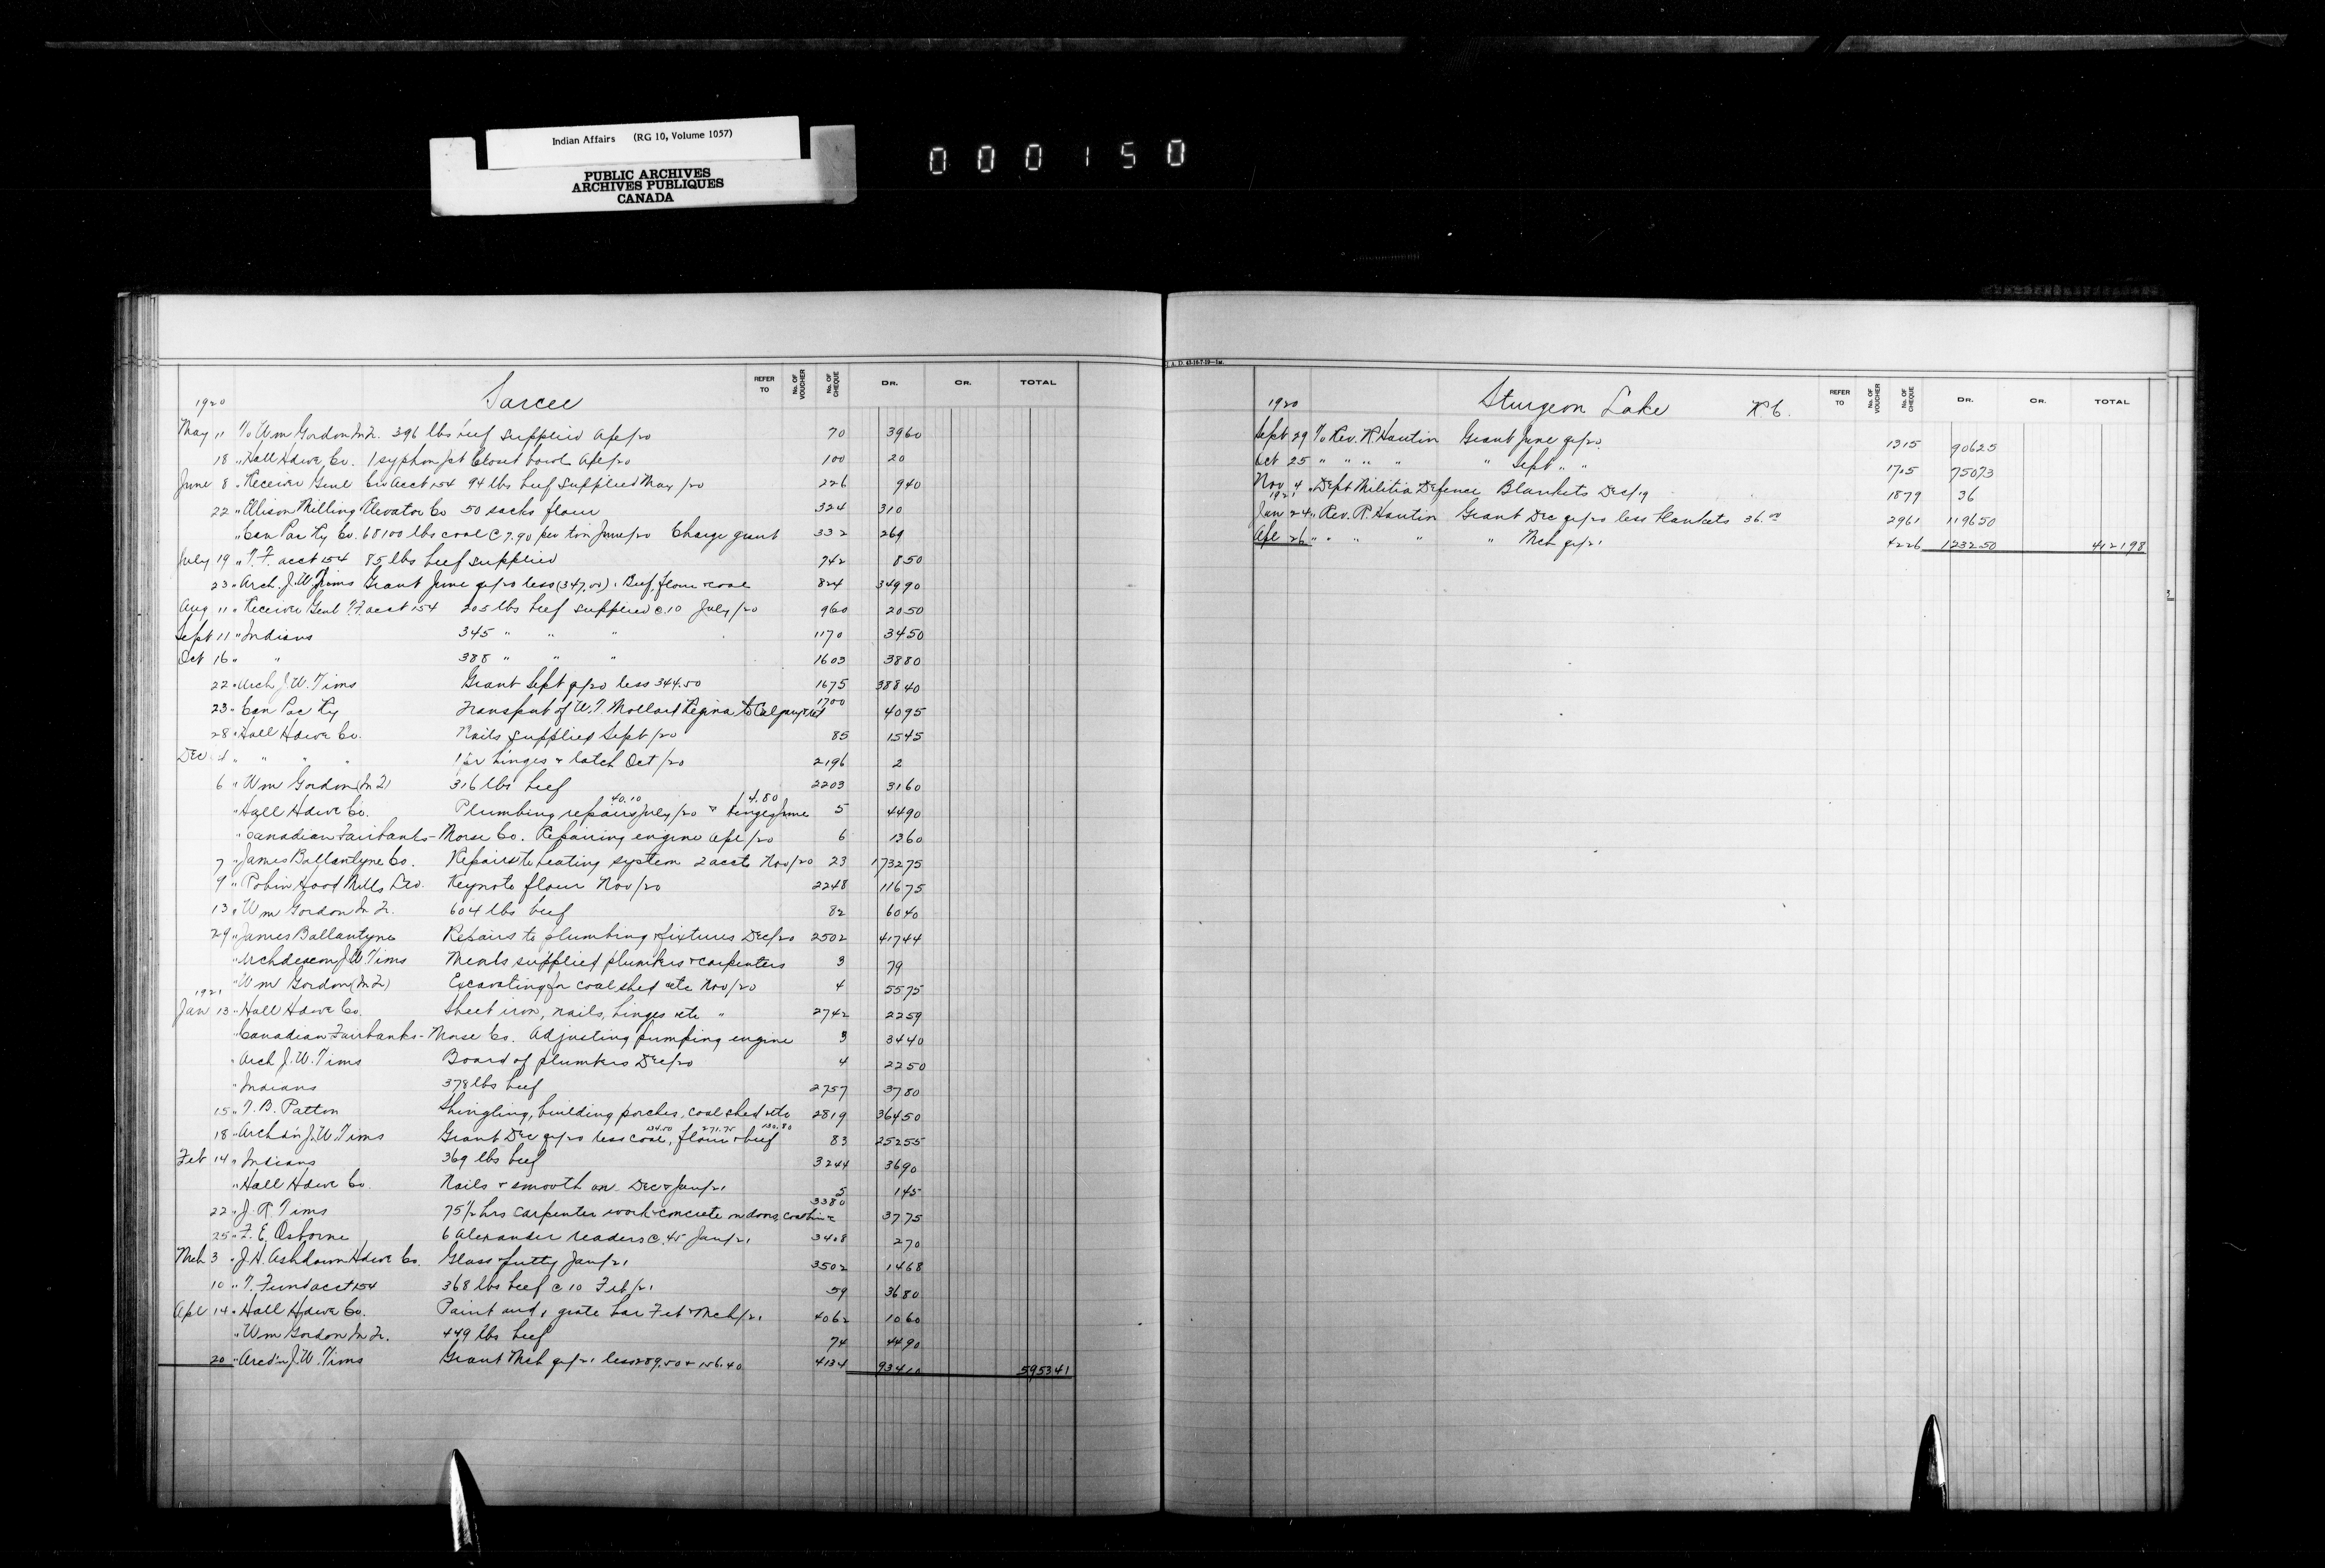 Indian Affairs (RG 10, Volume 1057)
PUBLIC ARCHIVES
ARCHIVES PUBLIQUES
CANADA
000150
REFER TO No. OF VOUCHER No. OF CHEQUE DR. CR. TOTAL
1920 Sarcee
May 11 To Wm Gordon In Tr. 396 lbs beef supplied Apl/20 70 3960
18 " Hall Hdwe Co. 1 syphon jet closet bowl Apl/20 100 20
June 8 " Receiver Genl Acct 154 94 lbs beef supplied May/20 226 940
22 " Ellison Milling Elevator Co 50 sacks flour 324 310
" Can Pac Ry Co. 68100 lbs coal @ 7.90 per ton June/20 Charge grant 332 269
July 19 " T.F. acct 154 85 lbs beef supplied 742 850
23 " Arch. J.W. Tims Grant June qr/20 less (347.00) Beef, flour & coal 824 34990
Aug 11 " Receiver Genl T.F. acct 154 205 lbs beef supplied @ 10 July/20 960 2050
Sept 11 " Indians 345 " " " 1170 3450
Oct 16 " " 388 " " " 1603 3880
22 " Arch J.W. Tims Grant Sept qr/20 less 344.50 1675 38840
23 " Can Pac Ry Transport of W.T. Mollard Regina to Calgary 1700 4095
28 " Hall Hdwe Co. Nails supplied Sept/20 85 1545
Dec 4 " " " " 1 pr hinges & latch Oct/20 2196 2
6 " Wm Gordon (In Tr) 316 lbs beef 2203 3160
" Hall Hdwe Co. Plumbing repairs July/20 40.10 & hinges June 4.80 5 4490
" Canadian Fairbanks-Morse Co. Repairing engine Apl/20 6 1360
7 " James Ballantyne Co. Repairs to heating system 2 accts Nov/20 23 173275
9 " Robin Hood Mills Ltd. Keynote flour Nov/20 2248 11675
13 " Wm Gordon In Tr. 604 lbs beef 82 6040
29 " James Ballantyne Repairs to plumbing & fixtures Dec/20 2502 41744
" Archdeacon J.W. Tims Meals supplied plumbers & carpenters 3 79
" Wm Gordon (In Tr) Excavating for coal shed etc Nov/20 4 5575
1921
Jan 13 " Hall Hdwe Co. Sheet iron, nails, hinges etc " 2742 2259
" Canadian Fairbanks-Morse Co. Adjusting pumping engine 3 3440
" Arch J.W. Tims Board of plumbers Dec/20 4 2250
" Indians 378 lbs beef 2757 3780
15 " T.B. Patton Shingling, building porches, coal shed etc 2819 36450
18 " Archd'n J.W. Tims Grant Dec qr/20 less coal 134.50, flour 271.75 & beef 130.80 83 25255
Feb 14 " Indians 369 lbs beef 3244 3690
" Hall Hdwe Co. Nails & smooth on Dec & Jan/21 5 145
22 " J.R. Tims 75½ hrs carpenter work & concrete on doors, 3380 3775
25 " F.E. Osborne 6 Alexander readers @ .45 Jan/21 3408 270
Mch 3 " J.H. Ashdown Hdwe Co. Glass & putty Jan/21 3502 1468
10 " T. Fund acct 154 368 lbs beef @ 10 Feb/21 59 3680
Apl 14 " Hall Hdwe Co. Paint and 1 grate bar Feb & Mch/21 4062 1060
" Wm Gordon In Tr. 449 lbs beef 74 4490
20 " Arcd'n J.W. Tims Grant Mch qr/21 less 289.50 & 156.40 4134 93410 595341
I. A. D.
REFER TO No. OF VOUCHER No. OF CHEQUE DR. CR. TOTAL
1920 Sturgeon Lake R C.
Sept 29 To Rev. R. Hautin Grant June qr/20 1315 90625
Oct 25 " " " " " Sept " " 1705 75073
Nov 4 " Dept Militia Defence Blankets Dec/19 1879 36
1921
Jan 24 " Rev. R. Hautin Grant Dec qr/20 less blankets 36.00 2961 119650
Apl 26 " " " " " Mch qr/21 4226 123250 412198